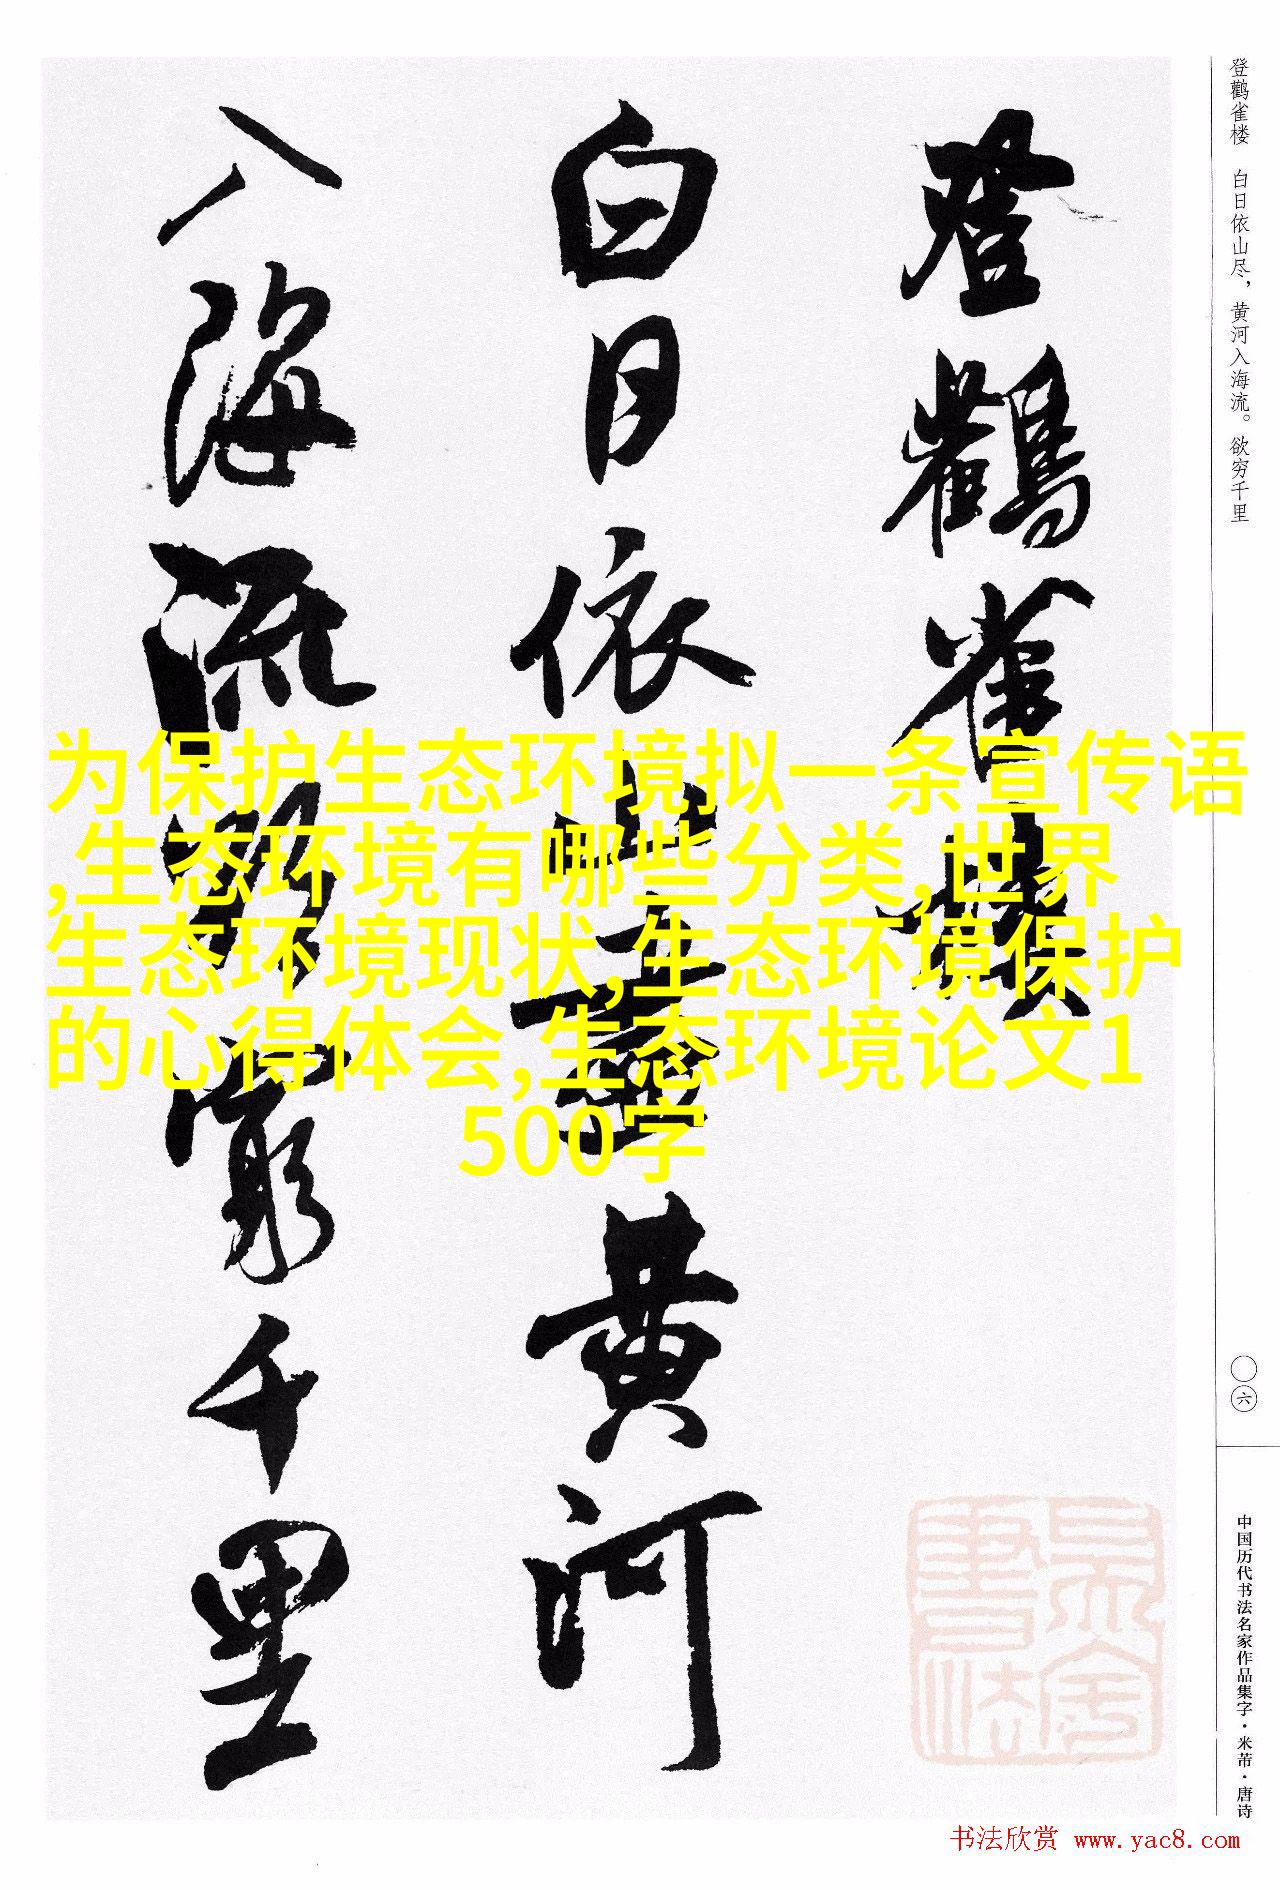 登鹳雀楼 白日依山尽，黄河入海流。欲穷千里
登鸛雀樓
白日依山盡黄河
入海流欲窮千里
为保护生态环境拟一条宣传语
,生态环境有哪些分类,世界
生态环境现状,生态环境保护
的心得体会,生态环境论文1
500字
〇六
中国历代书法名家作品集字·米芾·唐诗
书法欣赏 www.yac8.com